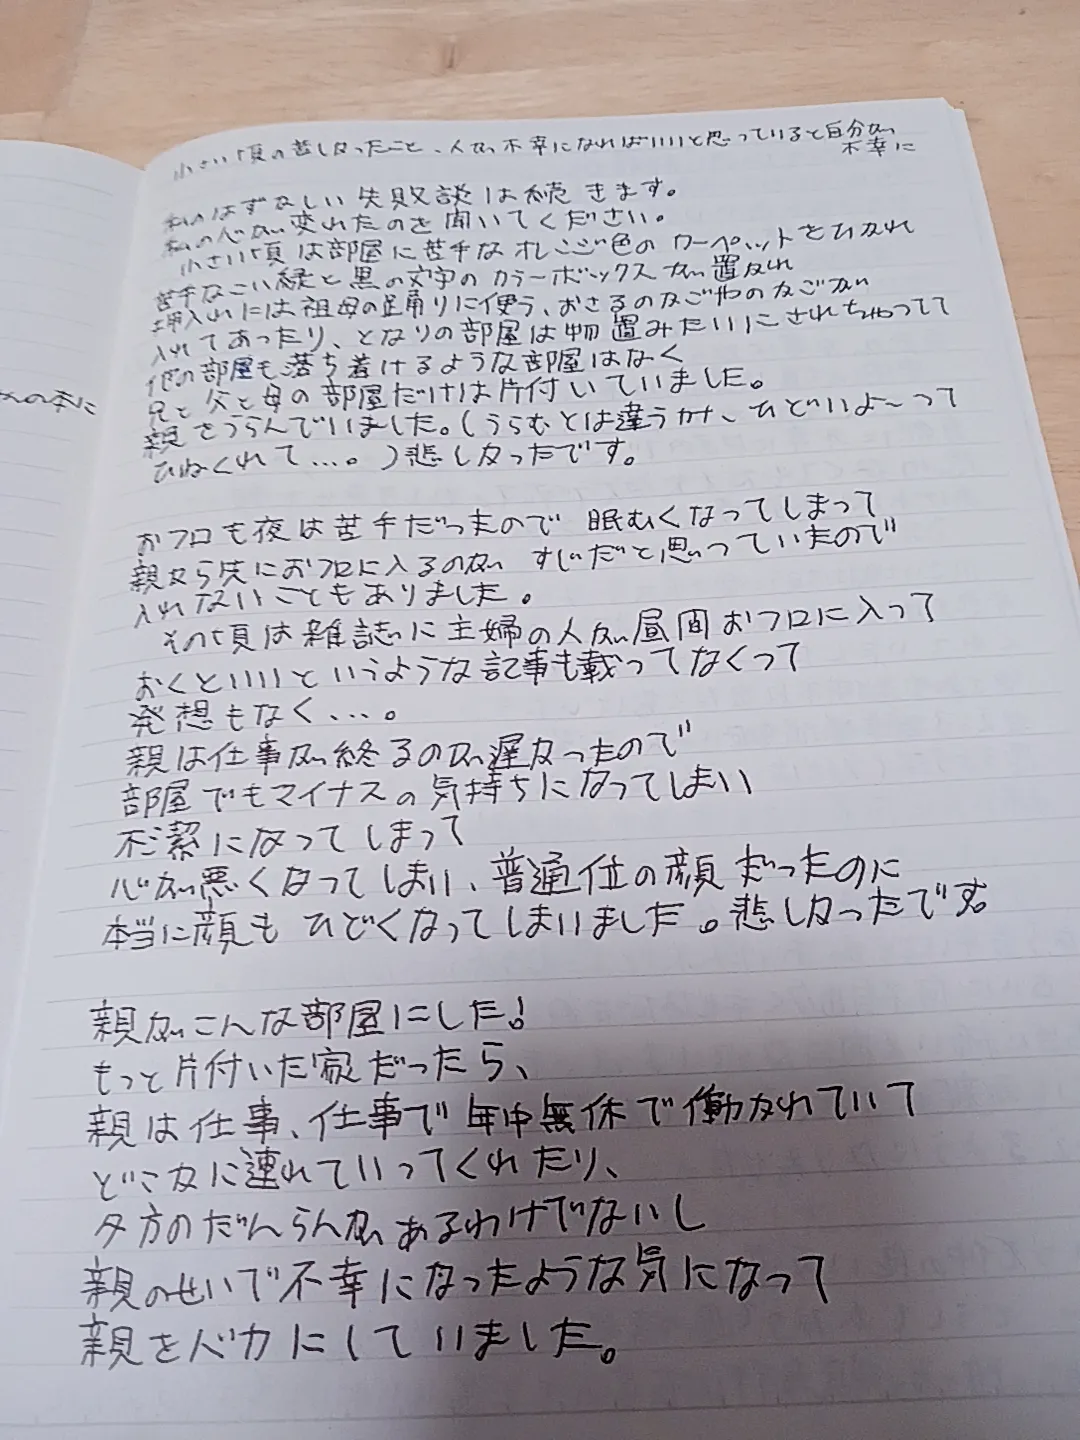 小さい頃の苦しかったこと、人が不幸になればいいと思っていると自分が
不幸に
私のはずかしい失敗談は続きます。
私の心が変れたのを聞いてください。
小さい頃は部屋に苦手なオレンジ色のカーペットをひかれ
苦手なこい緑と黒の文字のカラーボックスが置かれ
押入れには祖母の踊りに使う、おさるのかごやのかごが
入れてあったり、となりの部屋は物置みたいにされちゃってて
他の部屋も落ち着けるような部屋はなく
兄と父と母の部屋だけは片付いていました。
親をうらんでいました。(うらむとは違うか、ひどいよ〜って
ひねくれて...。)悲しかったです。
おフロも夜は苦手だったので眠むくなってしまって
親から先におフロに入るのがすじだと思っていたので
入れないこともありました。
その頃は雑誌に主婦の人が昼間おフロに入って
おくといいというような記事も載ってなくって
発想もなく...。
親は仕事が終るのが遅かったので
部屋でもマイナスの気持ちになってしまい
不潔になってしまって
心が悪くなってしまい、普通位の顔だったのに
本当に顔もひどくなってしまいました。悲しかったです。
親がこんな部屋にした!
もっと片付いた家だったら、
親は仕事、仕事で年中無休で働かれていて
どこかに連れていってくれたり、
夕方のだんらんがあるわけでないし
親のせいで不幸になったような気になって
親をバカにしていました。